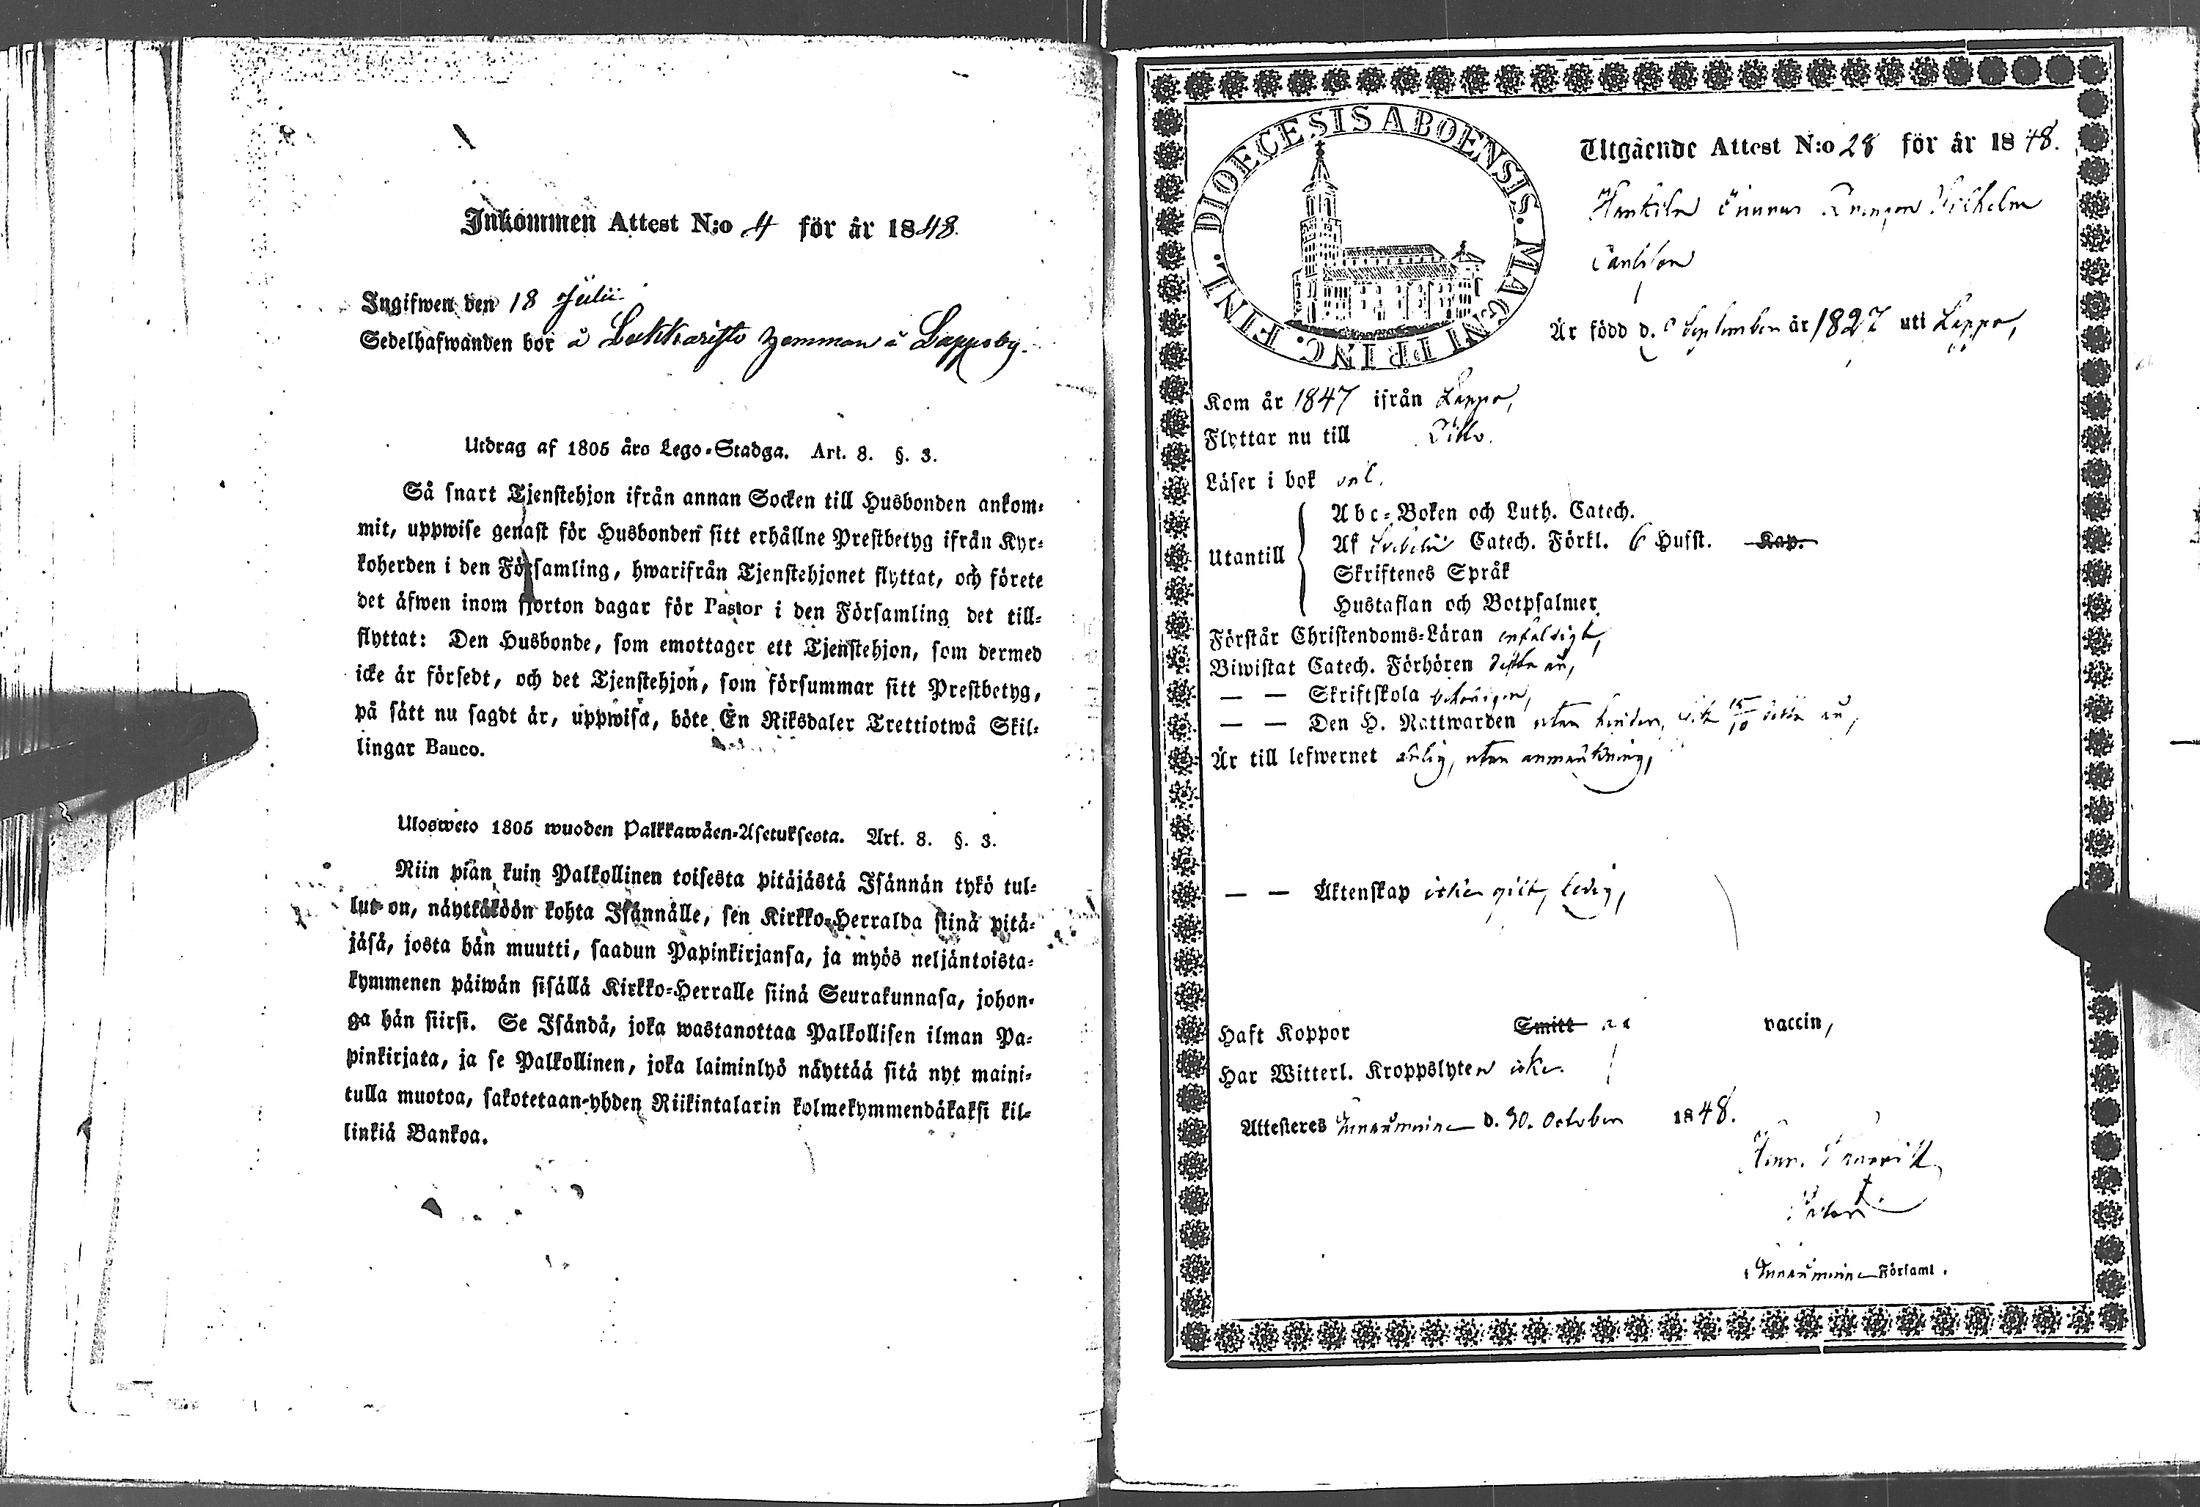 Inkommen Attest N:o 4 för år 1848.
Ingifwen den 18 Julii
Sedelhafwanden bor å Lukkaristo hemman i Lappoby.
Utdrag af 1805 års Lego-Stadga. Art. 8. §. 3.
Så snart Tjenstehjon ifrån annan Socken till Husbonden ankom-
mit, uppwise genast för Husbonden sitt erhållne Prestbetyg ifrån Kyr-
koherden i den Församling, hwarifrån Tjenstehjonet flyttat, och förete
det äfwen inom fjorton dagar för Pastor i den Församling det till-
flyttat: Den Husbonde, som emottager ett Tjenstehjon, som dermed
icke är försedt, och det Tjenstehjon, som försummar sitt Prestbetyg,
på sätt nu sagdt är, uppwisa, böte En Riksdaler Trettiotwå Skil-
lingar Banco.
Ulosweto 1805 wuoden Palkkawäen-Asetuksesta. Art. 8. §. 3.
Niin pian kuin Palkollinen toisesta pitäjästä Isännän tykö tul-
lut on, näyttäköön kohta Isännälle, sen Kirkko-Herralda siinä pitä-
jäsä, josta hän muutti, saadun Papinkirjansa, ja myös neljäntoista-
kymmenen päiwän sisällä Kirkko-Herralle siinä Seurakunnasa, johon-
ga hän siirsi. Se Isändä, joka wastanottaa Palkollisen ilman Pa-
pinkirjata, ja se Palkollinen, joka laiminlyö näyttää sitä nyt maini-
tulla muotoa, sakotetaan yhden Riikintalarin kolmekymmendäkaksi kil-
linkiä Bankoa.
DIOECESIS ABOENSIS. MAGNI PRINC. FINL.
Utgående Attest N:o 28 för år 1848.
Wilhelm
Carlsson
Är född d. September år 1827 uti Lappo,
Kom år 1847 ifrån Lappo,
Flyttar nu till Ditto.
Läser i bok väl.
Abc-Boken och Luth. Catech.
Utantill Af Svebelii Catech. Förkl. 6 Hufst. Kap.
Skriftenes Språk
Hustaflan och Botpsalmer
Förstår Christendoms-Läran enfaldigt,
Biwistat Catech. Förhören detta år,
— — Skriftskola behörigen,
— — Den H. Nattwarden utan hinder, sist 15/10 detta år,
Är till lefwernet ärlig, utan anmärkning,
— — Äktenskap icke gift, ledig,
Haft Koppor Smitt vaccin,
Har Witterl. Kroppslyten icke.
Attesteres d. 30. October 1848.
Församl.